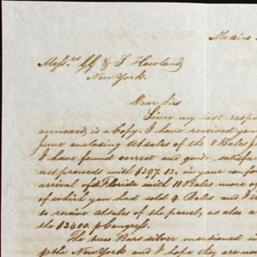 Mexico
Messrs. G G & S Howland
New York.
Dear Sirs
Since my last resp
annexed is a Copy. I have received your
June enclosing A/sales of the 8 Bales
I have found correct and quite satisfa
net proceeds with $397.12, in your confor
arrival of Florida with 11 Bales more o
of which you had sold 4 Bales and I
to receive A/sales of the parcel, as also a
the $3200 p Congress.
The two Bars silver mentioned in
p the New York and I hope they are now